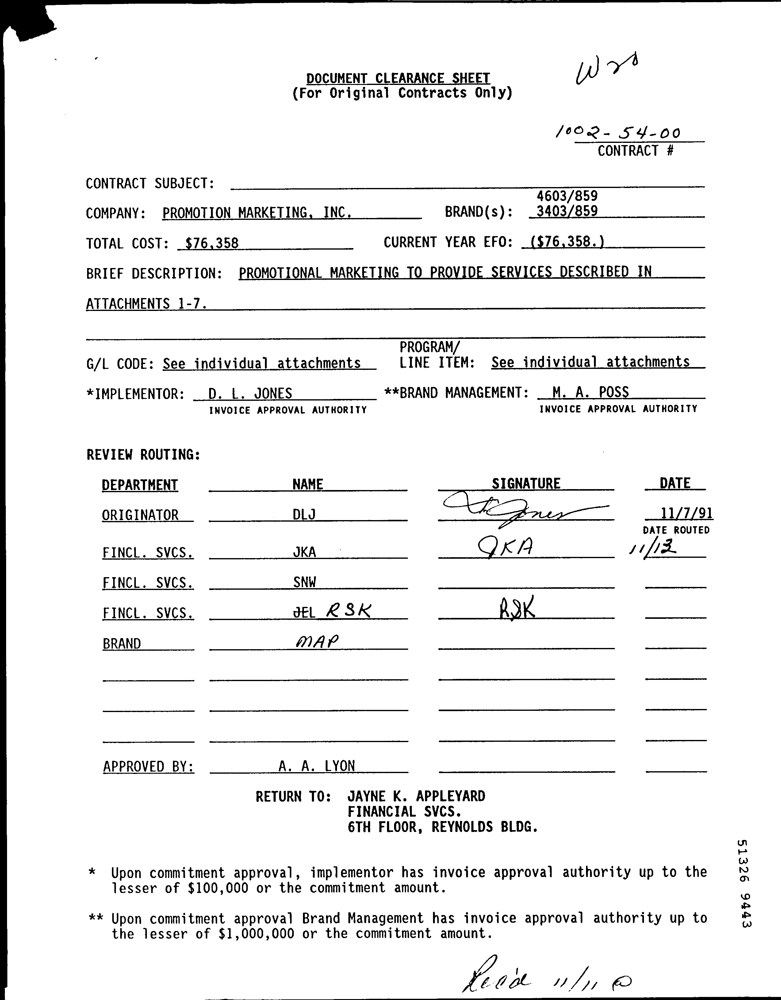 DOCUMENT CLEARANCE SHEET
(For Original Contracts Only)
1002-54-00
CONTRACT #
CONTRACT SUBJECT:
4603/859
COMPANY: PROMOTION MARKETING, INC. BRAND(s): 3403/859
TOTAL COST: $76,358 CURRENT YEAR EFO: ($76,358.)
BRIEF DESCRIPTION: PROMOTIONAL MARKETING TO PROVIDE SERVICES DESCRIBED IN
ATTACHMENTS 1-7.
PROGRAM/
G/L CODE: See individual attachments LINE ITEM: See individual attachments
*IMPLEMENTOR: D. L. JONES **BRAND MANAGEMENT: M. A. POSS
INVOICE APPROVAL AUTHORITY INVOICE APPROVAL AUTHORITY
REVIEW ROUTING:
DEPARTMENT NAME SIGNATURE DATE
ORIGINATOR DLJ Jones 11/7/91
DATE ROUTED
FINCL. SVCS. JKA JKA 11/13
FINCL. SVCS. SNW
FINCL. SVCS. JEL RSK RSK
BRAND MAP
APPROVED BY: A. A. LYON
RETURN TO: JAYNE K. APPLEYARD
FINANCIAL SVCS.
6TH FLOOR, REYNOLDS BLDG.
* Upon commitment approval, implementor has invoice approval authority up to the
lesser of $100,000 or the commitment amount.
** Upon commitment approval Brand Management has invoice approval authority up to
the lesser of $1,000,000 or the commitment amount.
51326 9443
Rec'd 11/11